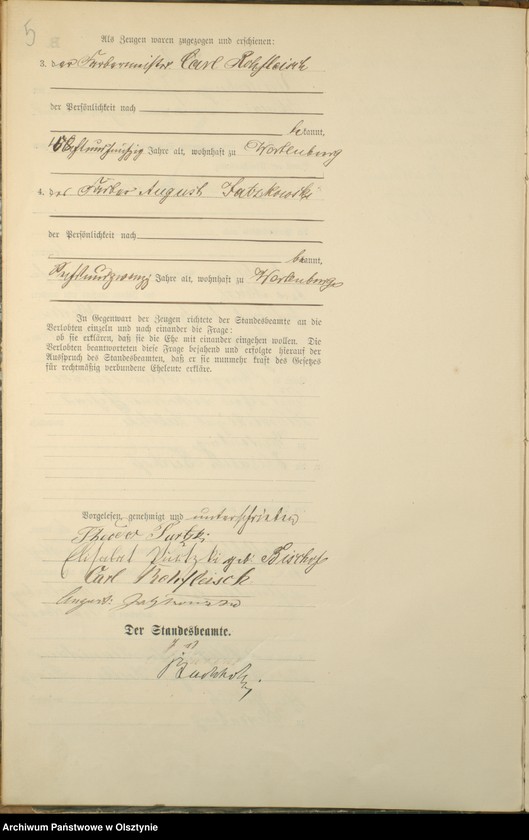 5
Als Zeugen waren zugezogen und erschienen:
3. der Färbermeister Carl Rohfleisch
der Persönlichkeit nach
bekannt,
Jahre alt, wohnhaft zu Wartenburg
4. der Färber August
der Persönlichkeit nach
bekannt,
Jahre alt, wohnhaft zu Wartenburg
In Gegenwart der Zeugen richtete der Standesbeamte an die
Verlobten einzeln und nach einander die Frage:
ob sie erklären, daß sie die Ehe mit einander eingehen wollen. Die
Verlobten beantworteten diese Frage bejahend und erfolgte hierauf der
Ausspruch des Standesbeamten, daß er sie nunmehr kraft des Gesetzes
für rechtmäßig verbundene Eheleute erkläre.
Vorgelesen, genehmigt und unterschrieben
Theodor
geb Bischof
Carl Rohfleisch
August
Der Standesbeamte.
Archiwum Państwowe w Olsztynie